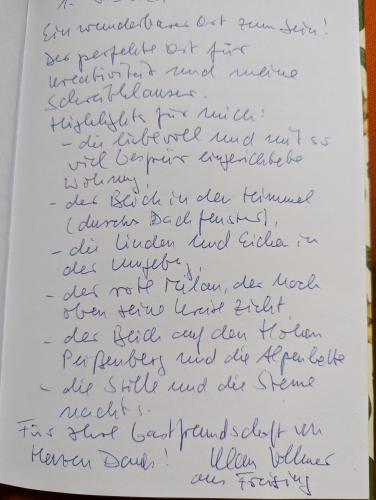 Ein wunderbarer Ort zum Sein!
Der perfekte Ort für
Kreativität und meine
Schreibklausur.
Highlights für mich:
- die liebevoll und mit so
viel Gespür eingerichtete
Wohnung,
- der Blick in den Himmel
(durchs Dachfenster),
- die Linden und Eichen in
der Umgebung,
- der rote Milan, der hoch
oben seine Kreise zieht,
- der Blick auf den Hohen
Peißenberg und die Alpenkette
- die Stille und die Sterne
nachts.
Für Ihre Gastfreundschaft von
Herzen Dank! Vollmer
aus Freising